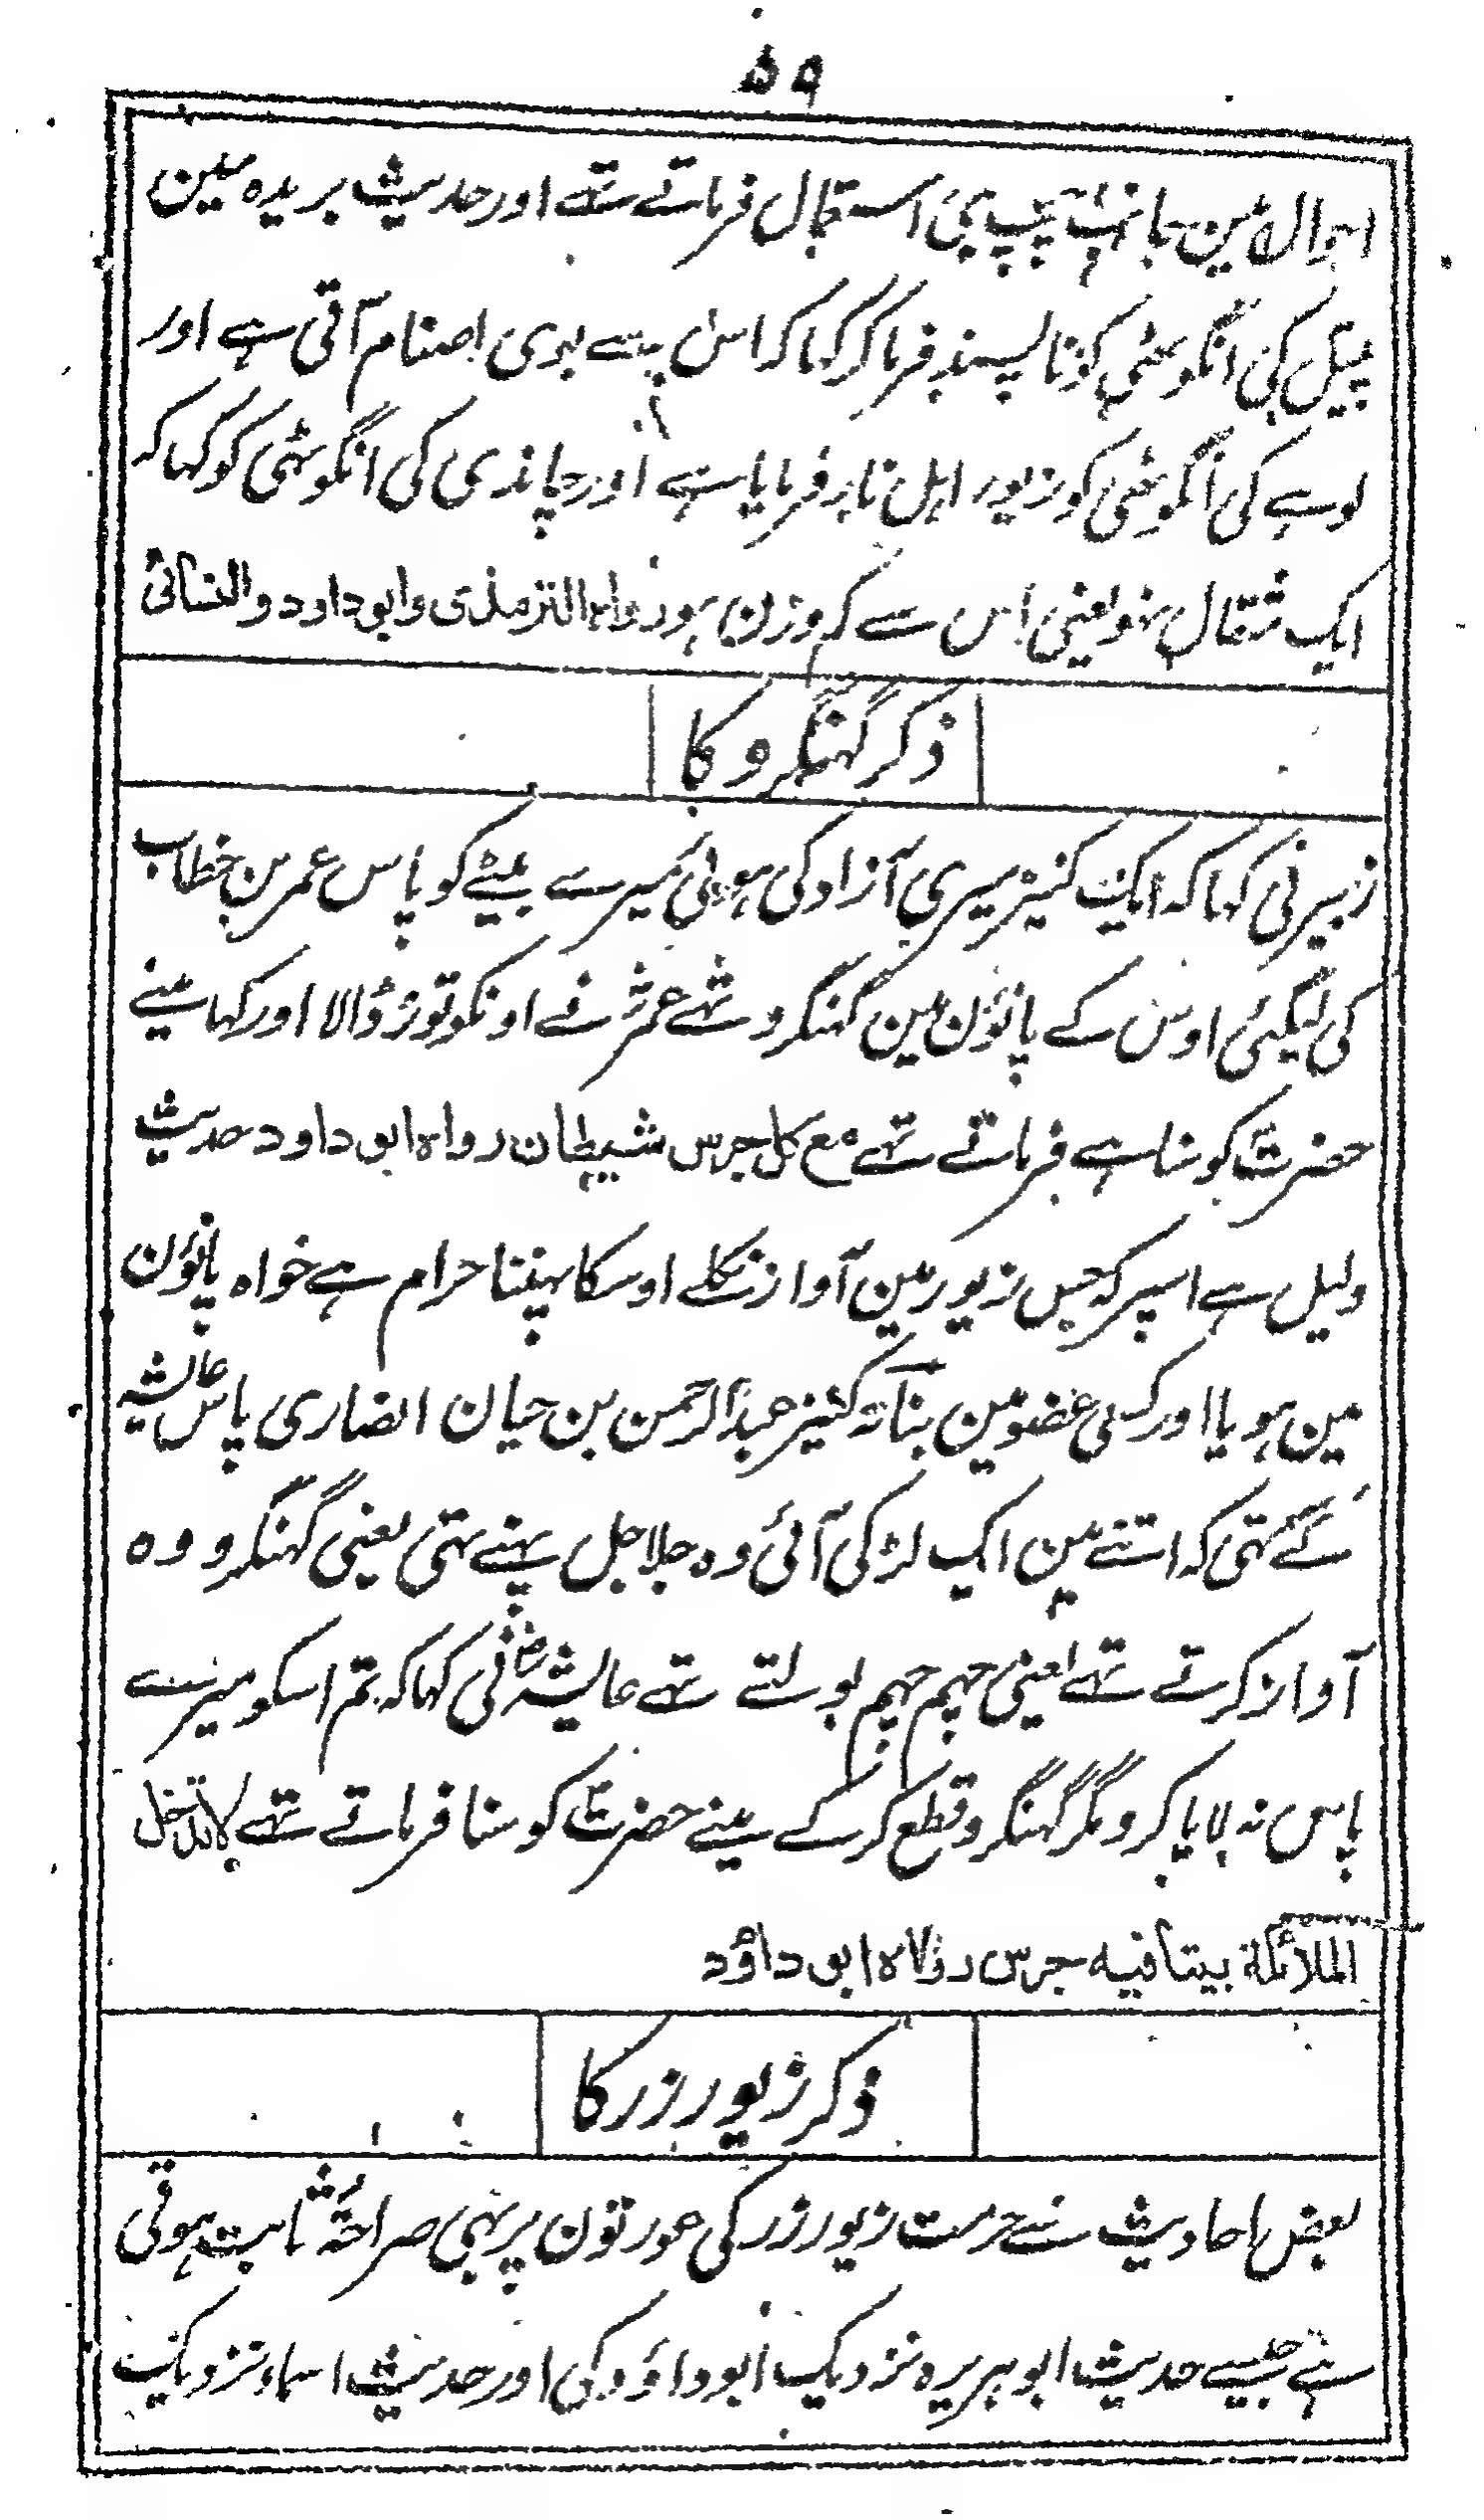 ۵۹
احوال مین جانب چپ بہی استعمال فرماتے تہے اور حدیث بریدہ مین
پیتل کی انگوٹھی کو ناپسند فرما کر کہا کہ اس سے بوی اصنام آتی ہے اور
لوہے کی انگوٹھی کو زیور اہل نار فرمایا ہے اور چاندی کی انگوٹھی کو کہا کہ
ایک مثقال نہو یعنی اس سے کم وزن ہو رواہ الترمذی وابو داود والنسائی
ذکر گہنگرو کا
زبیر نی کہا کہ ایک کنیز میری آزاد کی ہوئی میرے بیٹے کو پاس عمر بن خطاب
کی لیگئی اوس کے پانوُن مین گہنگرو تہے عمرؓ نے اونکو توڑ ڈالا اور کہا مینے
حضرتؐ کو سنا ہے فرماتے تہے مع کل جرس شیطان رواہ ابو داود حدیث
دلیل ہے اسپر کہ جس زیور مین آواز نکلے اوسکا پہننا حرام ہے خواہ پانوُن
مین ہو یا اور کسی عضو مین بنانہ کنیز عبد الرحمن بن حیان انصاری پاس عایشہ
کے تہی کہ اتنے مین ایک لڑکی آئی وہ جلاجل پہنے تہی یعنی گہنگرو وہ
آواز کرتے تہے یعنی چہم چہم بولتے تہے عایشہؓ نی کہا کہ تم اسکو میرے
پاس نہ لایا کرو مگر گہنگرو قطع کر کے مینے حضرتؐ کو سنا فرماتے تہے لا تدخل
الملائکة بیتا فیه جرس رواہ ابو داؤد
ذکر زیور زر کا
بعض احادیث سے حرمت زیور زر کی عورتون پر بہی صراحۃً ثابت ہوتی
ہے جیسے حدیث ابو ہریرہ نزدیک ابو داؤد کی اور حدیث اسماء نزدیک